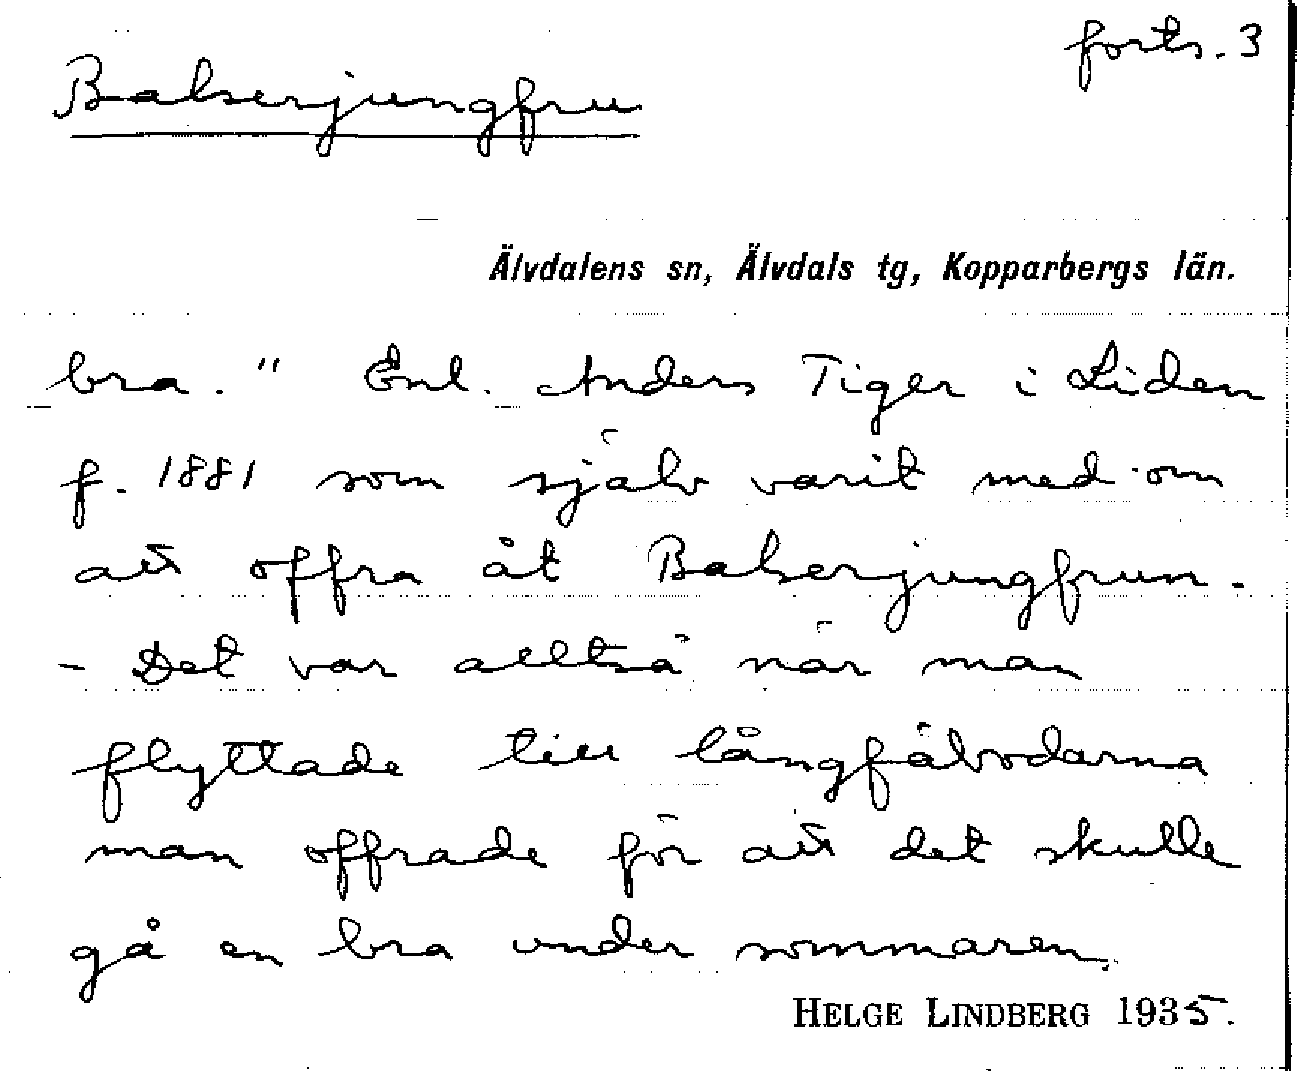 forts. 3
Balserjungfru
Älvdalens sn, Älvdals tg, Kopparbergs län.
bra." Enl. Anders Tiger i Liden
f. 1881 som själv varit med om
att offra åt Balserjungfrun.
- Det var alltså när man
flyttade till långfäbodarna
man offrade för att det skulle
gå en bra under sommaren.
HELGE LINDBERG 1935.